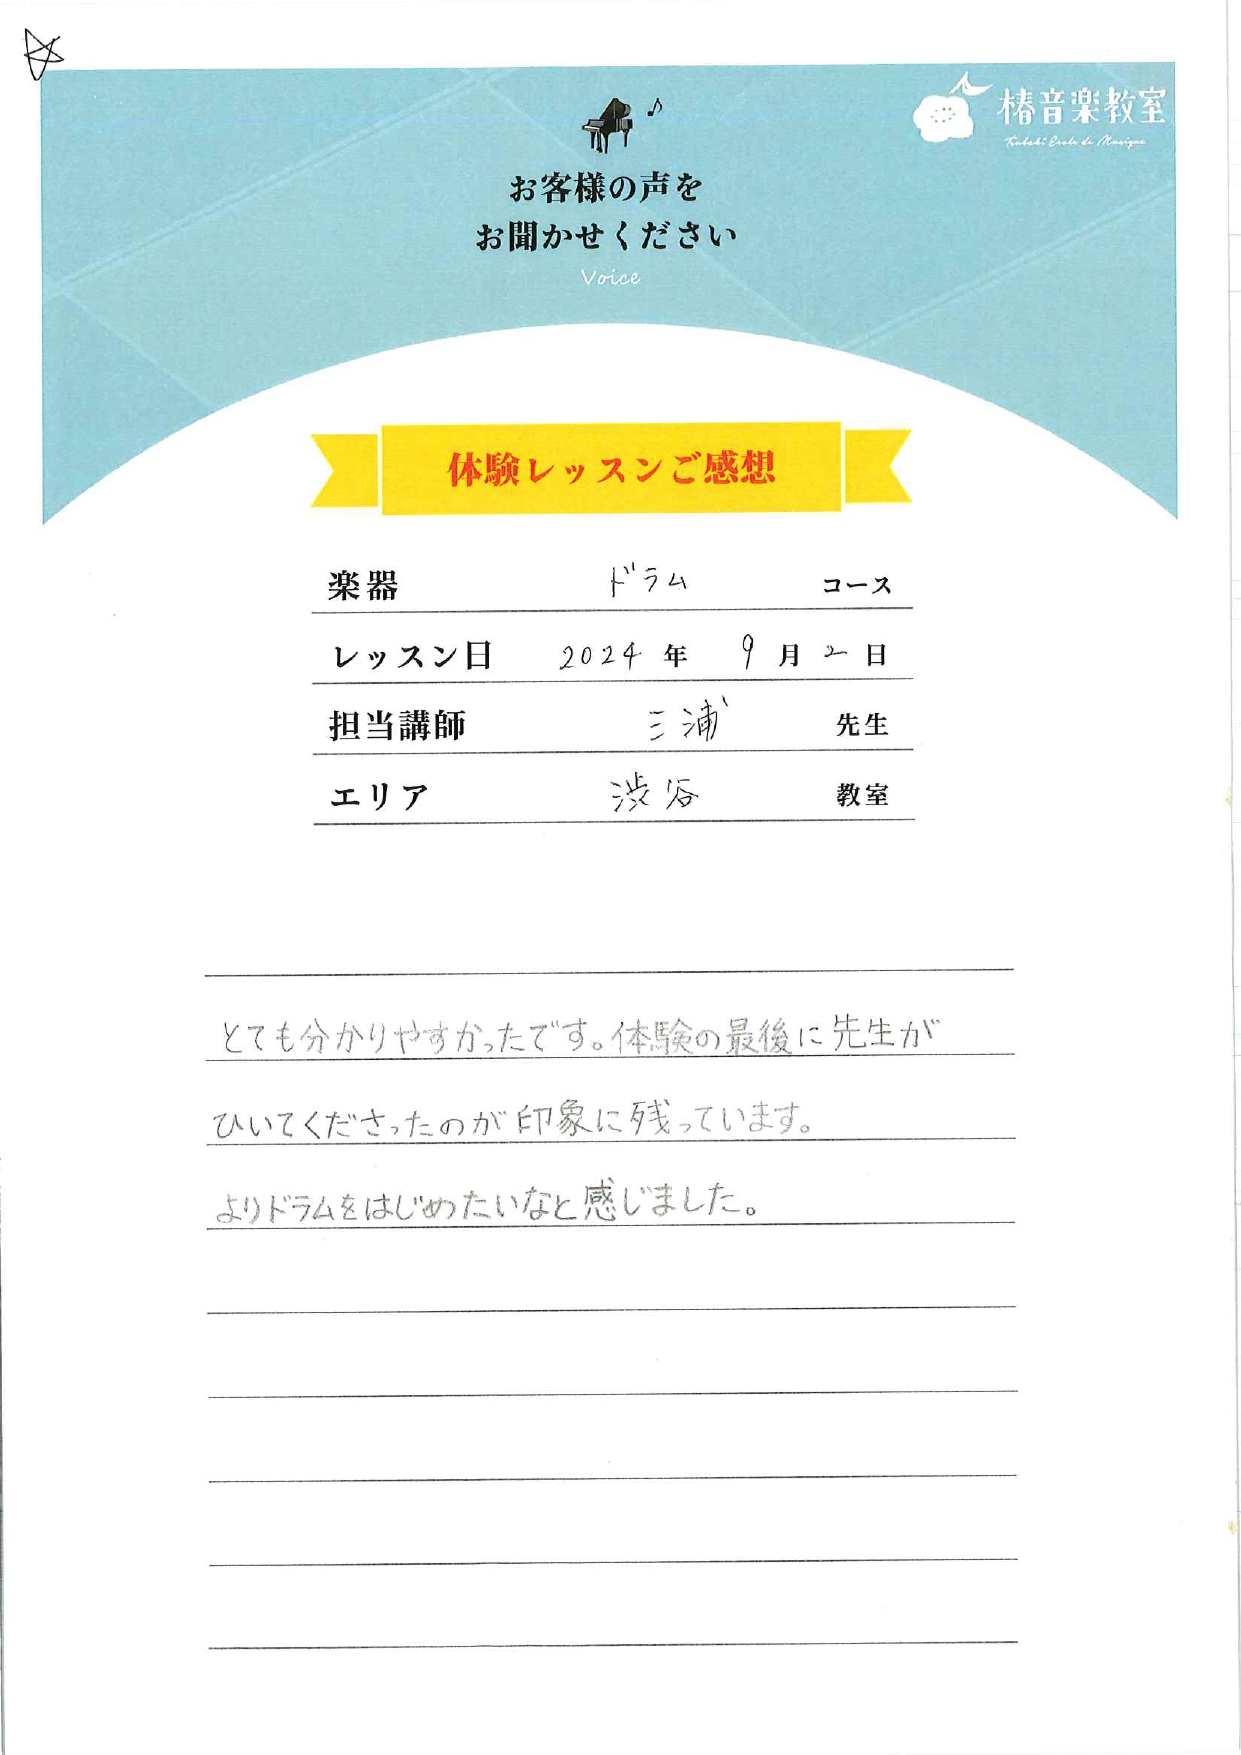 椿音楽教室
Tsubaki Ecole de Musique
お客様の声を
お聞かせください
Voice
体験レッスンご感想
楽器 ドラム コース
レッスン日 2024 年 9 月 2 日
担当講師 三浦 先生
エリア 渋谷 教室
とても分かりやすかったです。体験の最後に先生が
ひいてくださったのが印象に残っています。
よりドラムをはじめたいなと感じました。